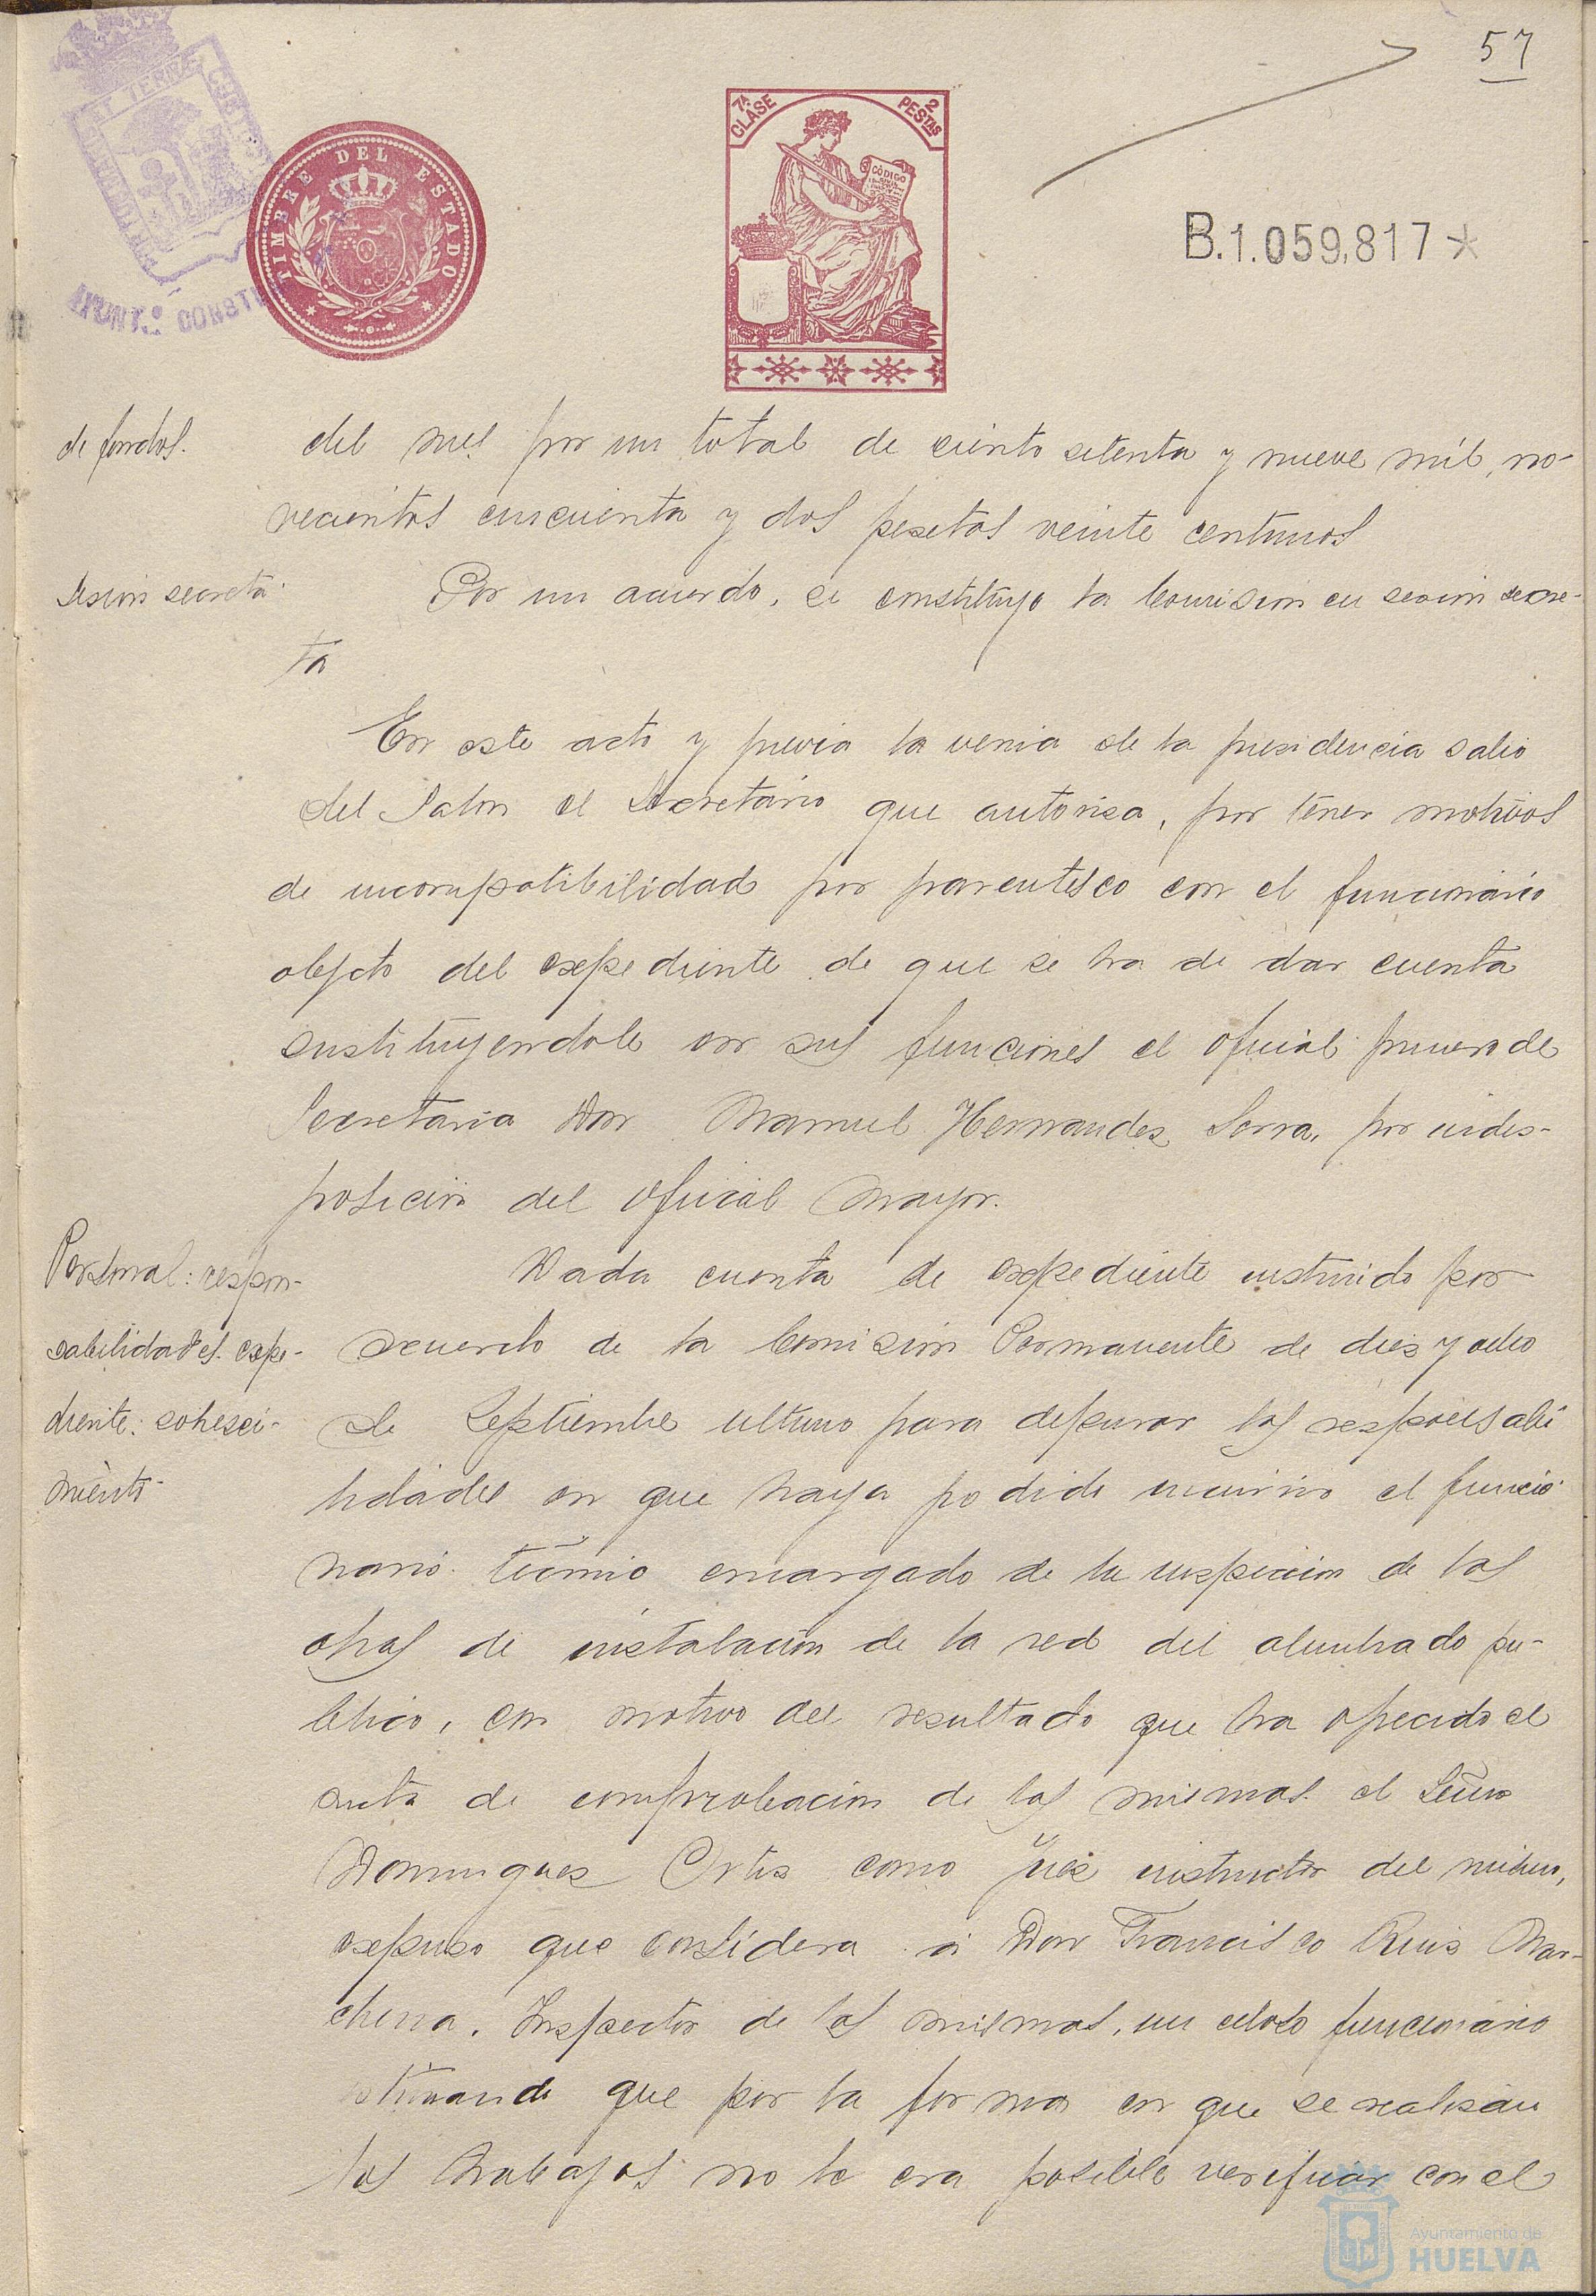 57
PORTUS MARIS ET TERRAE CUSTODIA
AYUNT.º CONSTL
TIMBRE DEL ESTADO
7ª CLASE
2 PESTAS
CÓDIGO
B.1.059,817*
de fondos.
del mes por un total de ciento setenta y nueve mil, no-
vecientos cincuenta y dos pesetas veinte centimos
Sesion secreta
Por un acuerdo, se constituyo la Comision en sesion secre-
ta
En este acto y previa la venia de la presidencia salio
del Salon el Secretario que autorisa, por tener motivos
de incompatibilidad por parentesco con el funcionario
objeto del expediente de que se ha de dar cuenta
sustituyendole en sus funciones el oficial primero de
Secretaria Don Manuel Hernandez Serra, por indis-
posicion del oficial mayor.
Personal: respon-
sabilidades. expe-
diente: sobresei-
miento-
Dada cuenta de expediente instruido por
acuerdo de la Comision Permanente de diez y ocho
de Septiembre ultimo para depurar las responsabi
lidades en que haya podido incurrir el funcio
nario tecnico encargado de la inspeccion de las
obras de instalacion de la red del alumbrado pu-
blico, con motivo del resultado que ha ofrecido el
acta de comprobacion de las mismas. el Señor
Dominguez Ortiz como Juez instructor del mismo,
expuso que considera á Don Francisco Ruiz Mar-
chena, Inspector de las mismas, un celoso funcionario
estimando que por la forma en que se realizan
los trabajos no le era posible verificar con el
Ayuntamiento de
HUELVA